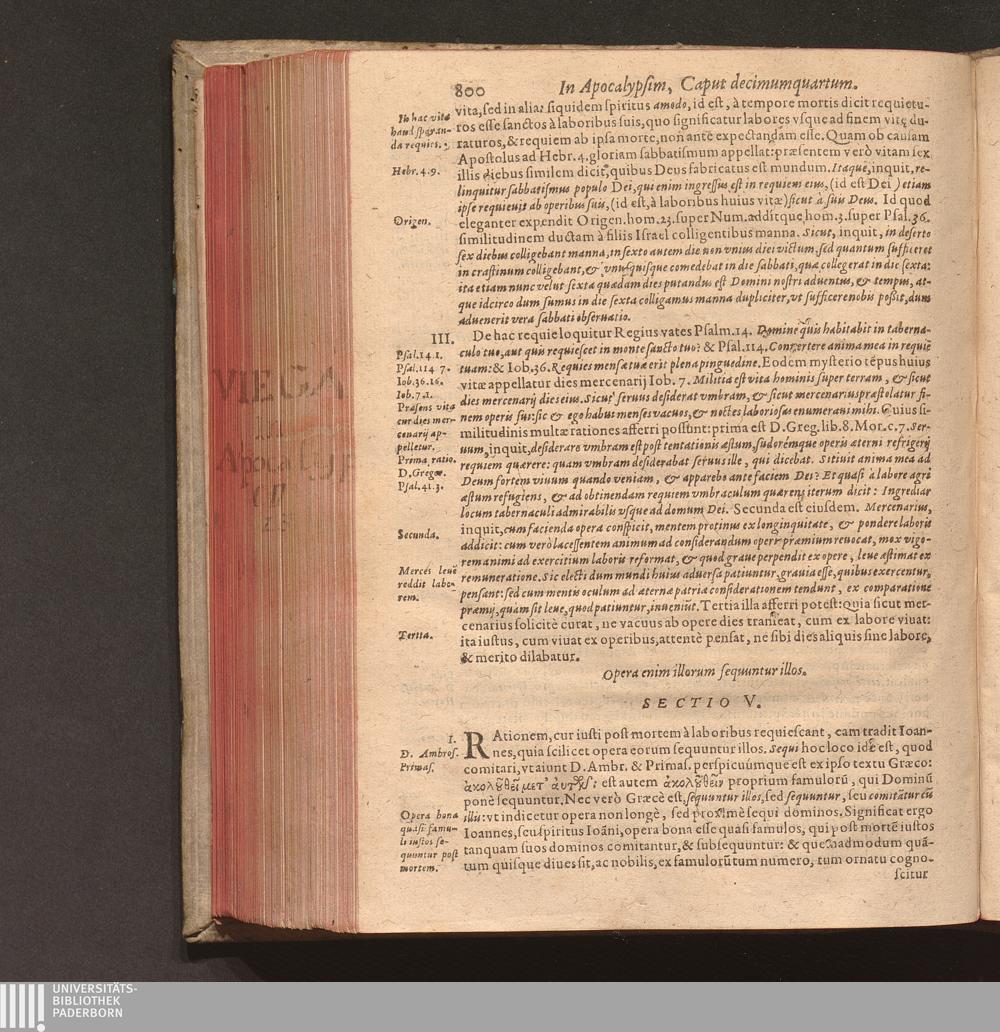 800 In Apocalypsim, Caput decimumquartum.
vita, sed in alia: siquidem spiritus amodo, id est, à tempore mortis dicit requietu-
ros esse sanctos à laboribus suis, quo significatur labores vsque ad finem vitę du-
raturos, & requiem ab ipsa morte, non ante expectandam esse. Quam ob causam
Apostolus ad Hebr. 4. gloriam sabbatismum appellat: præsentem verò vitam sex
illis diebus similem dicit, quibus Deus fabricatus est mundum. Itaque, inquit, re-
linquitur sabbatismus populo Dei, qui enim ingressus est in requiem eius, (id est Dei) etiam
ipse requieuit ab operibus suis, (id est, à laboribus huius vitæ) sicut à suis Deus. Id quod
eleganter expendit Origen. hom. 23. super Num. additque hom. 3. super Psal. 36.
similitudinem ductam à filiis Israel colligentibus manna. Sicut, inquit, in deserto
sex diebus colligebant manna, in sexto autem die non vnius diei victum, sed quantum sufficeret
in crastinum colligebant, & vnusquisque comedebat in die sabbati, quæ collegerat in die sexta:
ita etiam nunc velut sexta quædam dies putandus est Domini nostri aduentus, & tempus, at-
que idcirco dum sumus in die sexta colligamus manna dupliciter, vt sufficere nobis possit, dum
aduenerit vera sabbati obseruatio.
In hac vita
haud speran-
da requies.
Hebr. 4. 9.
Origen.
III. De hac requie loquitur Regius vates Psalm. 14. Domine quis habitabit in taberna-
culo tuo, aut quis requiescet in monte sancto tuo? & Psal. 114. Conuertere anima mea in requiē
tuam: & Iob. 36. Requies mensæ tuæ erit plena pinguedine. Eodem mysterio tēpus huius
vitæ appellatur dies mercenarij Iob. 7. Militia est vita hominis super terram, & sicut
dies mercenarij dies eius. Sicut seruus desiderat vmbram, & sicut mercenarius præstolatur fi-
nem operis sui: sic & ego habui menses vacuos, & noctes laboriosas enumeraui mihi. Cuius si-
militudinis multæ rationes afferri possunt: prima est D. Greg. lib. 8. Mor. c. 7. Ser-
uum, inquit, desiderare vmbram est post tentationis æstum, sudorémque operis æterni refrigerij
requiem quærere: quam vmbram desiderabat seruus ille, qui dicebat. Sitiuit anima mea ad
Deum fortem viuum quando veniam, & apparebo ante faciem Dei? Et quasi à labore agri
æstum refugiens, & ad obtinendam requiem vmbraculum quærens iterum dicit: Ingrediar
locum tabernaculi admirabilis vsque ad domum Dei. Secunda est eiusdem. Mercenarius,
inquit, cum facienda opera conspicit, mentem protinus ex longinquitate, & pondere laboris
addicit: cum verò lacessentem animum ad considerandum operis præmium reuocat, mox vigo-
rem animi ad exercitium laboris reformat, & quod graue perpendit ex opere, leue æstimat ex
remuneratione. Sic electi dum mundi huius aduersa patiuntur, grauia esse, quibus exercentur,
pensant: sed cum mentis oculum ad æternæ patriæ considerationem tendunt, ex comparatione
præmij, quàm sit leue, quod patiuntur, inueniūt. Tertia illa afferri potest: Quia sicut mer-
cenarius solicitè curat, ne vacuus ab opere dies transeat, cum ex labore viuat:
ita iustus, cum viuat ex operibus, attentè pensat, ne sibi dies aliquis sine labore,
& merito dilabatur.
Psal. 14. 1.
Psal. 114 7.
Iob. 36. 16.
Iob. 7. 1.
Præsens vita
cur dies mer-
cenarij ap-
pelletur.
Prima ratio.
D. Gregor.
Psal. 41. 3.
Secunda.
Merces leuē
reddit labo-
rem.
Tertia.
Opera enim illorum sequuntur illos.
SECTIO V.
I. RAtionem, cur iusti post mortem à laboribus requiescant, eam tradit Ioan-
nes, quia scilicet opera eorum sequuntur illos. Sequi hoc loco idē est, quod
comitari, vt aiunt D. Ambr. & Primas. perspicuúmque est ex ipso textu Græco:
ἀκολȣθεῖ μετ' ἀυτῶν: est autem ἀκολȣθεῖν proprium famulorū, qui Dominū
ponè sequuntur. Nec verò Græcè est, sequuntur illos, sed sequuntur, seu comitātur cū
illis: vt indicetur opera non longè, sed proximè sequi dominos. Significat ergo
Ioannes, seu spiritus Ioāni, opera bona esse quasi famulos, qui post mortē iustos
tanquam suos dominos comitantur, & subsequuntur: & quemadmodum quā-
tum quisque diues sit, ac nobilis, ex famulorū tum numero, tum ornatu cogno-
scitur
D. Ambros.
Primas.
Opera bona
quasi famu-
li iustos se-
quuntur post
mortem.
UNIVERSITÄTS-
BIBLIOTHEK
PADERBORN